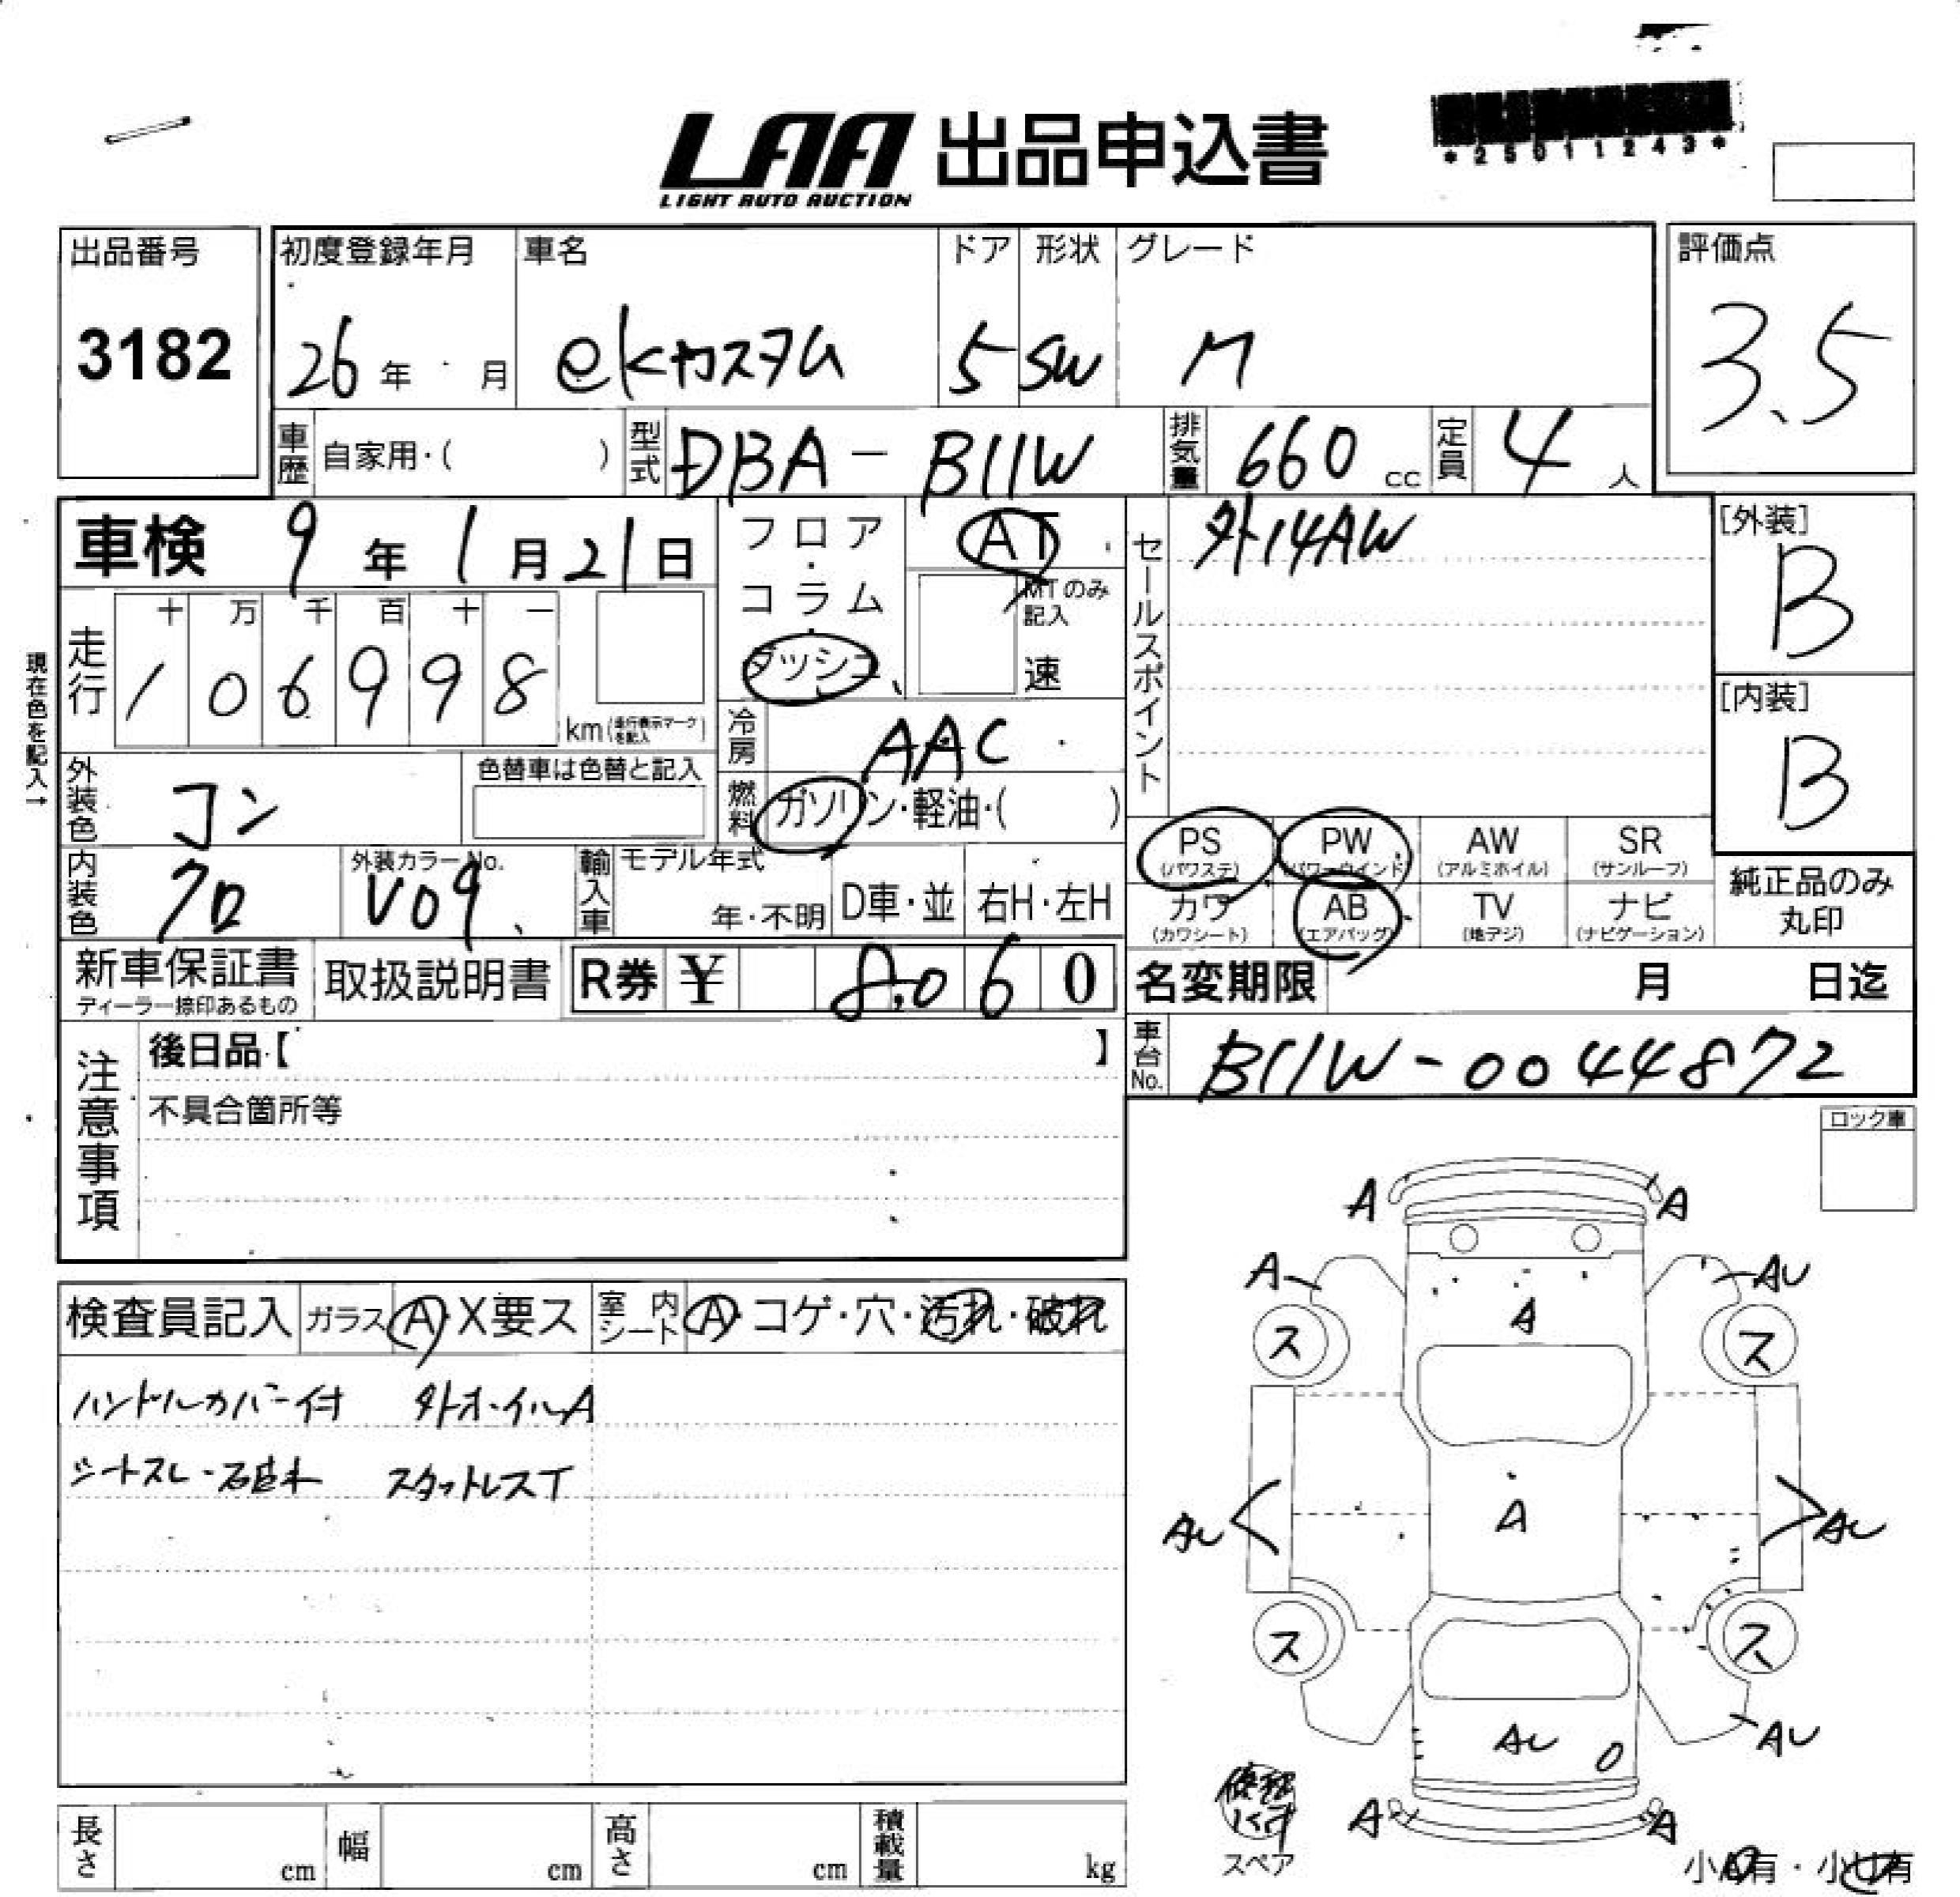 LAA 出品申込書
LIGHT AUTO AUCTION
*25011243*
出品番号 3182
初度登録年月 26年 月
車名 ekカスタム
ドア 5
形状 SW
グレード M
評価点 3.5
車歴 自家用・( )
型式 DBA-B11W
排気量 660 cc
定員 4 人
車検 9年1月21日
フロア・コラム・ダッシュ
AT
MTのみ記入
速
セールスポイント 外14AW
[外装] B
[内装] B
現在色を記入→
走行 十万千百十一
106998 km(走行表示マークを記入)
冷房 AAC
燃料 ガソリン・軽油・( )
外装色 コン
色替車は色替と記入
内装色 クロ
外装カラーNo. V09
輸入車 モデル年式 年・不明 D車・並 右H・左H
PS (パワステ) PW (パワーウインド) AW (アルミホイル) SR (サンルーフ)
カワ (カワシート) AB (エアバッグ) TV (地デジ) ナビ (ナビゲーション)
純正品のみ丸印
新車保証書 ディーラー捺印あるもの
取扱説明書
R券 ¥ 8,060
名変期限 月 日迄
車台No. B11W-0044872
注意事項
後日品【 】
不具合箇所等
ロック車
検査員記入 ガラス A・X要ス 室内シート A・コゲ・穴・汚れ・破れ
ハンドルカバー付 外ホイルA
シートスレ・破れ スタットレスT
A A
A AU
A
ス ス
AU A AU
ス ス
AU AU
A A
修理キット
スペア
小凹有・小
長さ cm 幅 cm 高さ cm 積載量 kg